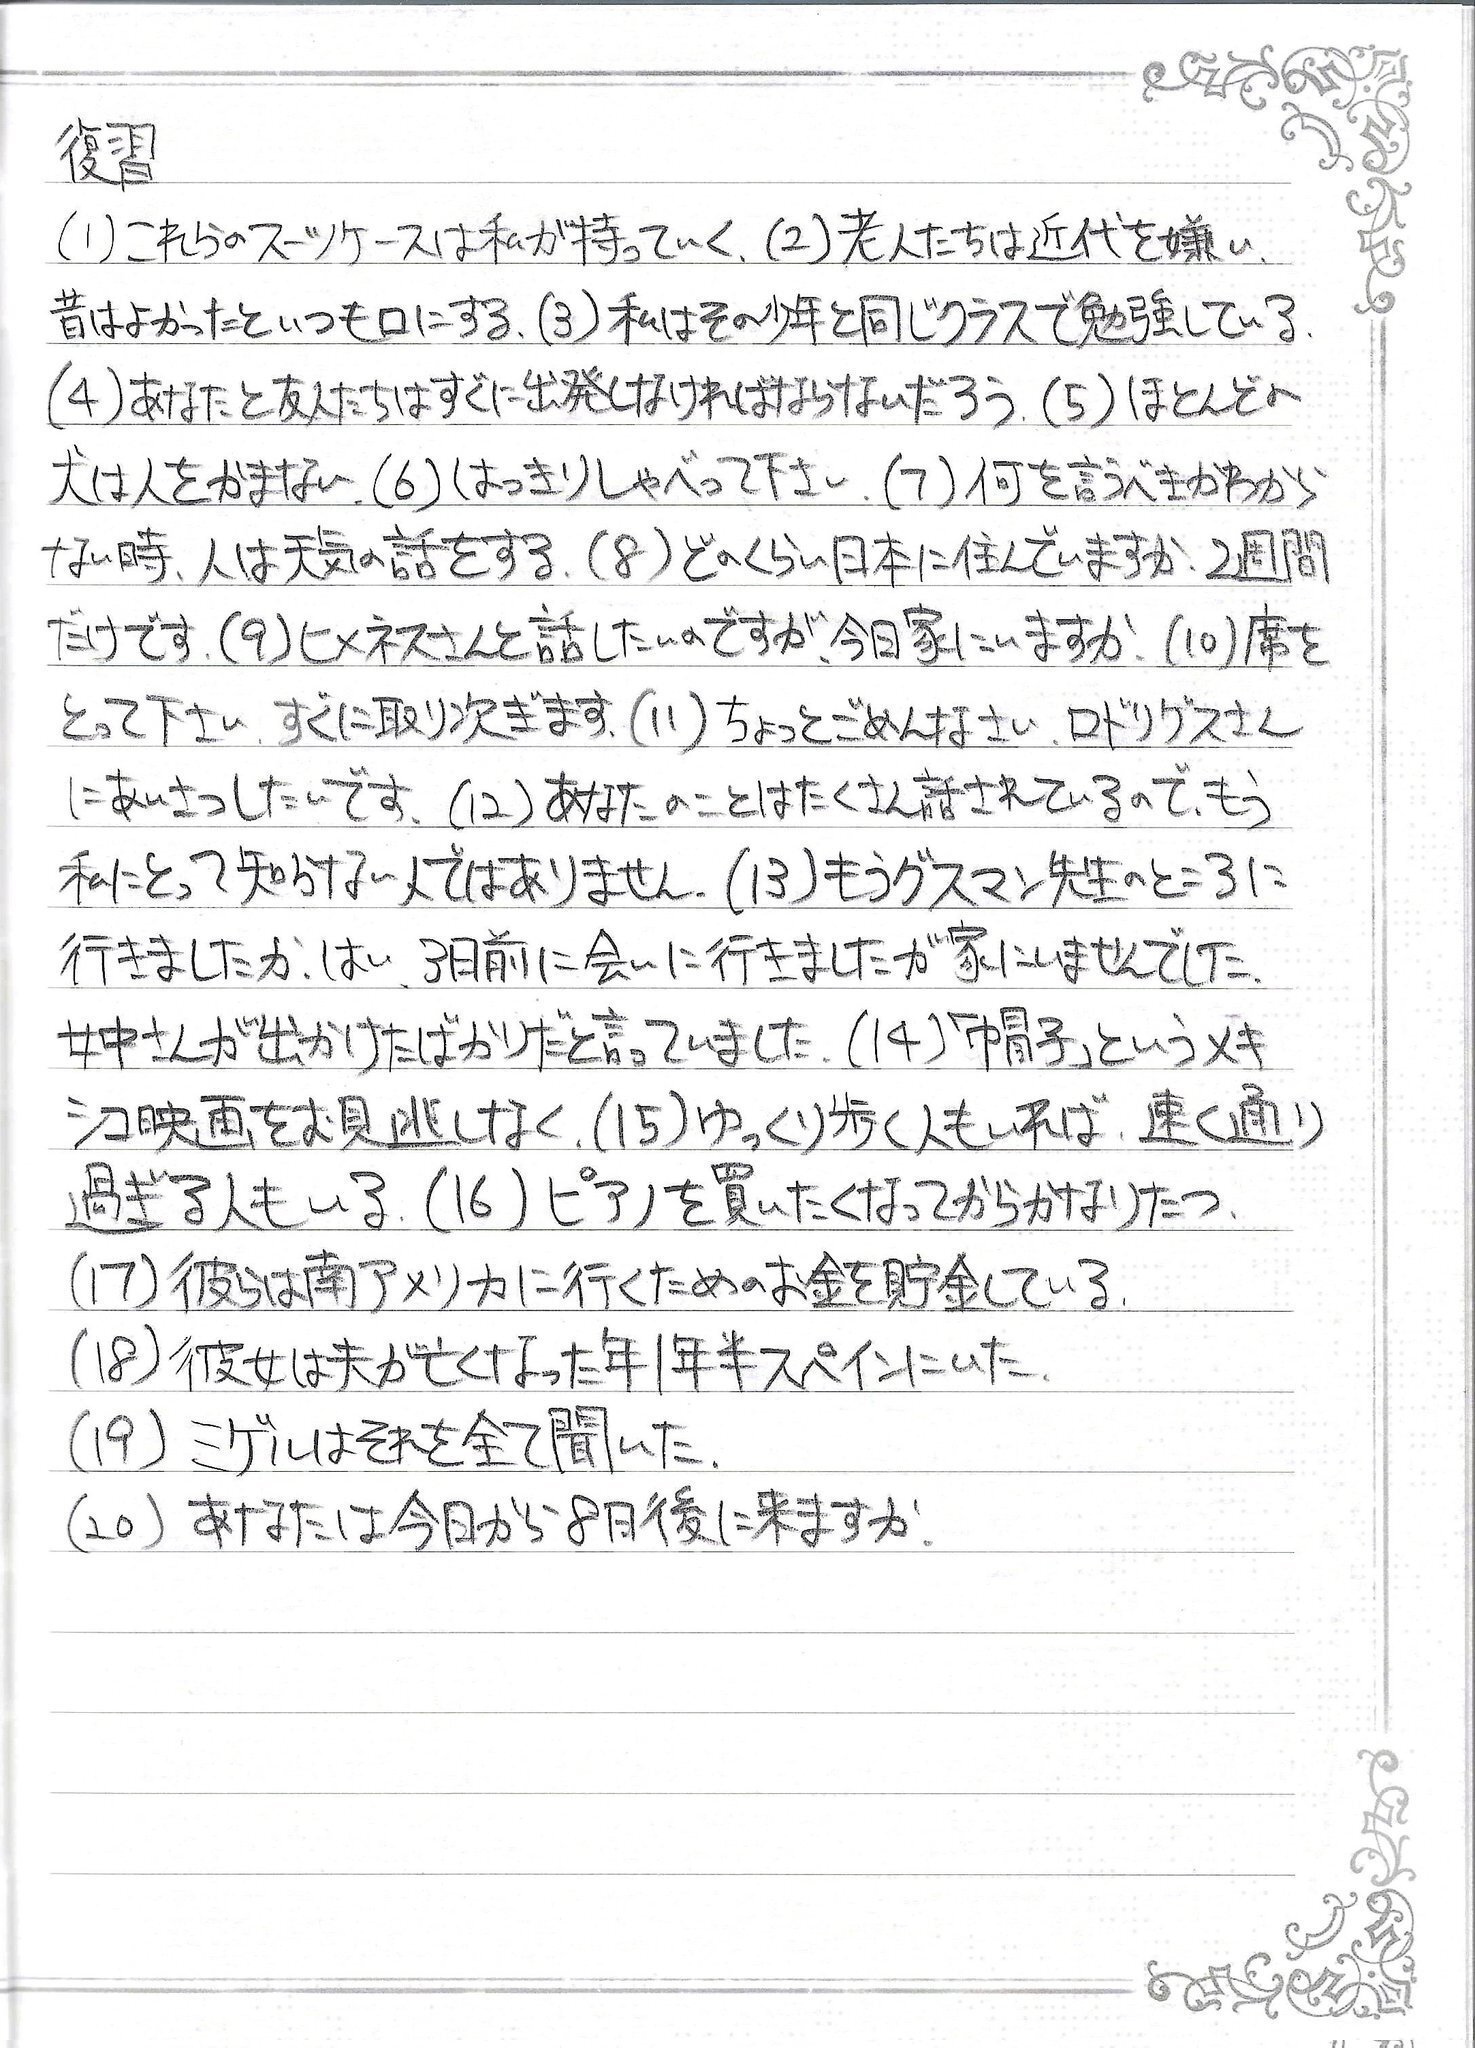 復習
(1)これらのスーツケースは私が持っていく.(2)老人たちは近代を嫌い、
昔はよかったといつも口にする.(3)私はその少年と同じクラスで勉強している.
(4)あなたと友人たちはすぐに出発しなければならないだろう.(5)ほとんどの
犬は人をかまない.(6)はっきりしゃべって下さい.(7)何を言うべきかわから
ない時、人は天気の話をする.(8)どのくらい日本に住んでいますか.2週間
だけです.(9)ヒメネスさんと話したいのですが、今日家にいますか.(10)席を
とって下さい.すぐに取り次ぎます.(11)ちょっとごめんなさい.ロドリゲスさん
にあいさつしたいです.(12)あなたのことはたくさん話されているので、もう
私にとって知らない人ではありません.(13)もうグスマン先生のところに
行きましたか.はい、3日前に会いに行きましたが家にいませんでした.
女中さんが出かけたばかりだと言っていました.(14)「帽子」というメキ
シコ映画をお見逃しなく.(15)ゆっくり歩く人もいれば、速く通り
過ぎる人もいる.(16)ピアノを買いたくなってからかなりたつ.
(17)彼らは南アメリカに行くためのお金を貯金している.
(18)彼女は夫が亡くなった年1年半スペインにいた.
(19)ミゲルはそれを全て聞いた.
(20)あなたは今日から8日後に来ますか.